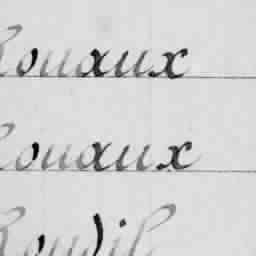 Rouaux
Rouaux
Roudil